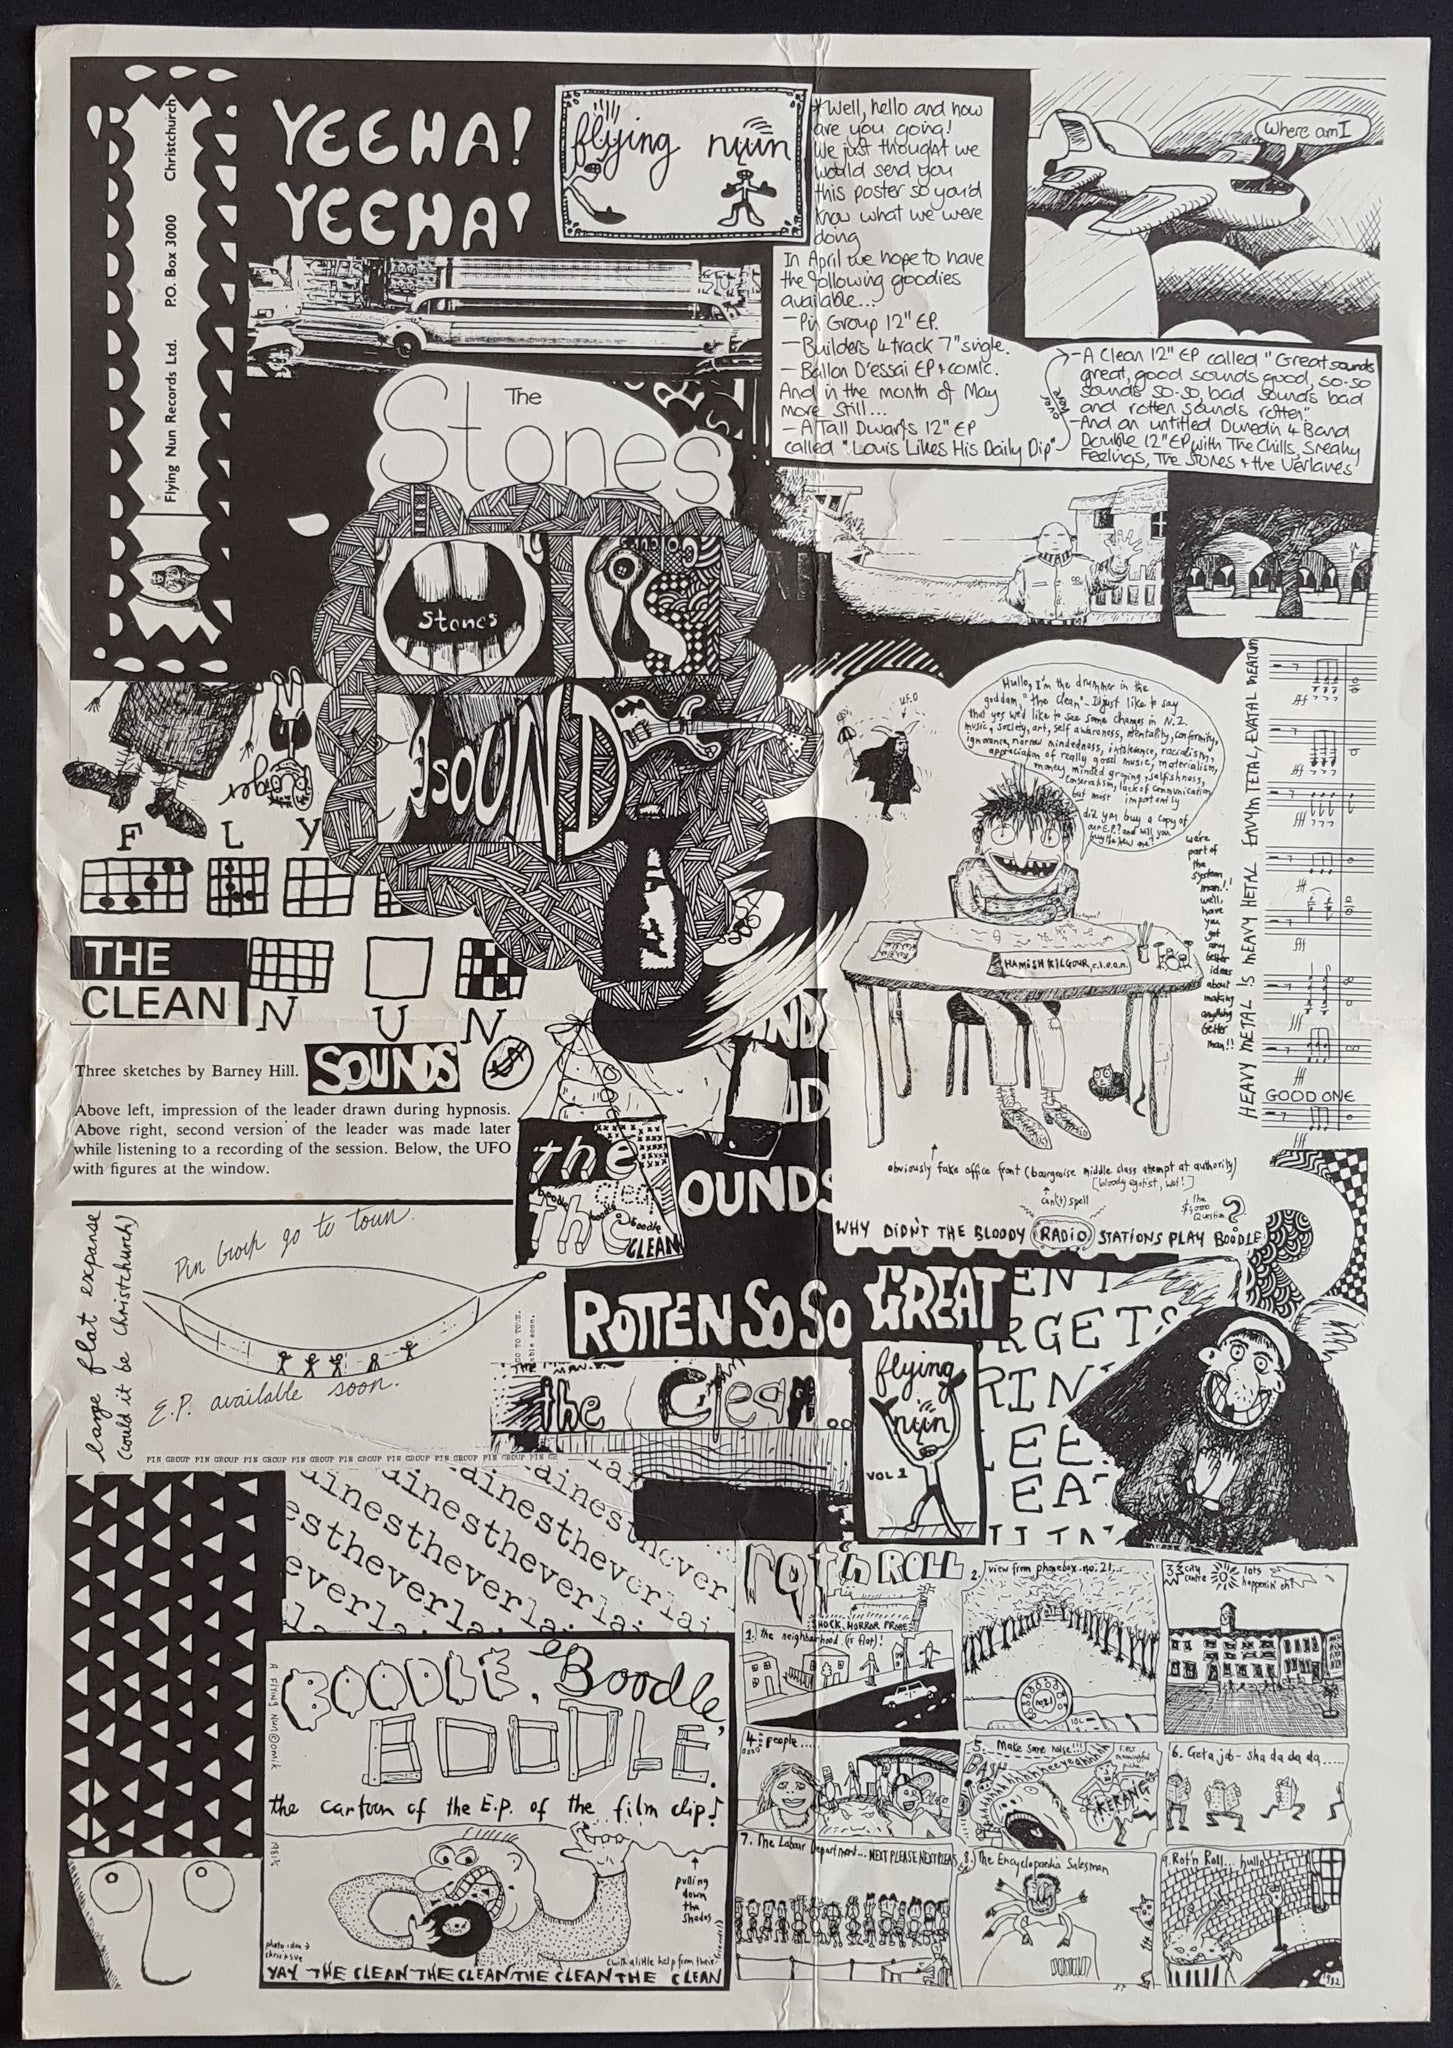 YEEHA!
YEEHA!
flying nun
Flying Nun Records Ltd. P.O. Box 3000 Christchurch
*Well, hello and how
are you going!
We just thought we
would send you
this poster so you'd
know what we were
doing
In April we hope to have
the following goodies
available...
- Pin Group 12" EP.
- Builders 4 track 7" single.
- Ballon D'essai EP + comic.
And in the month of May
more still...
- A Tall Dwarfs 12" EP
called "Louis Likes His Daily Dip"
over here
- A Clean 12" EP called "Great sounds
great, good sounds good, so-so
sounds so-so, bad sounds bad
and rotten sounds rotten"
- And an untitled Dunedin 4 Band
Double 12" EP with The Chills, Sneaky
Feelings, The Stones + the Verlaines
Where am I
The
Stones
Stones
SOUND
U.F.O
Hullo, I'm the drummer in the
goddam "the Clean". I'd just like to say
that yes we'd like to see some changes in N.Z.
music, society, art, self awareness, mentality, conformity,
ignorance, narrow mindedness, intolerance, racialism,
appreciation of really good music, materialism,
money minded groping, selfishness,
conservatism, lack of communication
but most importantly
did you buy a copy of
our E.P.? and will you
buy the new one?
we're
part of
the
system
man!!
well,
have
you
got
any
better
ideas
about
making
anything
better
man!!
HAMISH KILGOUR, c.l.e.a.n.
HEAVY METAL IS HEAVY METAL
GOOD ONE
F L Y
N U N
THE
CLEAN
SOUNDS
Three sketches by Barney Hill.
Above left, impression of the leader drawn during hypnosis.
Above right, second version of the leader was made later
while listening to a recording of the session. Below, the UFO
with figures at the window.
obviously fake office front (bourgeoise middle class attempt at authority)
[bloody egotist, wot!]
can(t) spell
the
$4,000
Question ?
WHY DIDN'T THE BLOODY RADIO STATIONS PLAY BOODLE
the
the
boodle boodle boodle
CLEAN
OUNDS
large flat expanse
(could it be Christchurch)
Pin Group go to town.
E.P. available soon.
PIN GROUP PIN GROUP PIN GROUP PIN GROUP PIN GROUP PIN GROUP PIN GROUP PIN GROUP PIN GROUP PIN GR
ROTTEN SO SO GREAT
the Clean
flying
nun
VOL 1
ENT
RGETS
RIN
EE
EA
ainesthever
estheverlai
everlai
BOODLE, Boodle,
BOODLE.
A FLYING NUN ©omik
the cartoon of the E.P. of the film clip!
1981½
pulling
down
the
shades
photo idea →
chris + sue
(with a little help from their friends)
YAY THE CLEAN THE CLEAN THE CLEAN THE CLEAN
rot'n ROLL
SHOCK, HORROR PROBE
1. the neighbourhood (is flat)!
2. view from phonebox. no. 21...
no. 21
3. city
centre
lots
happenin' eh!
4. people....
5. Make some noise!!!
BASH
KERANG
6. Get a job - sha da da da.....
7. The Labour Department... NEXT PLEASE NEXT PLEAS
8. The Encyclopaedia Salesman
9. Rot'n Roll... hullo
1982